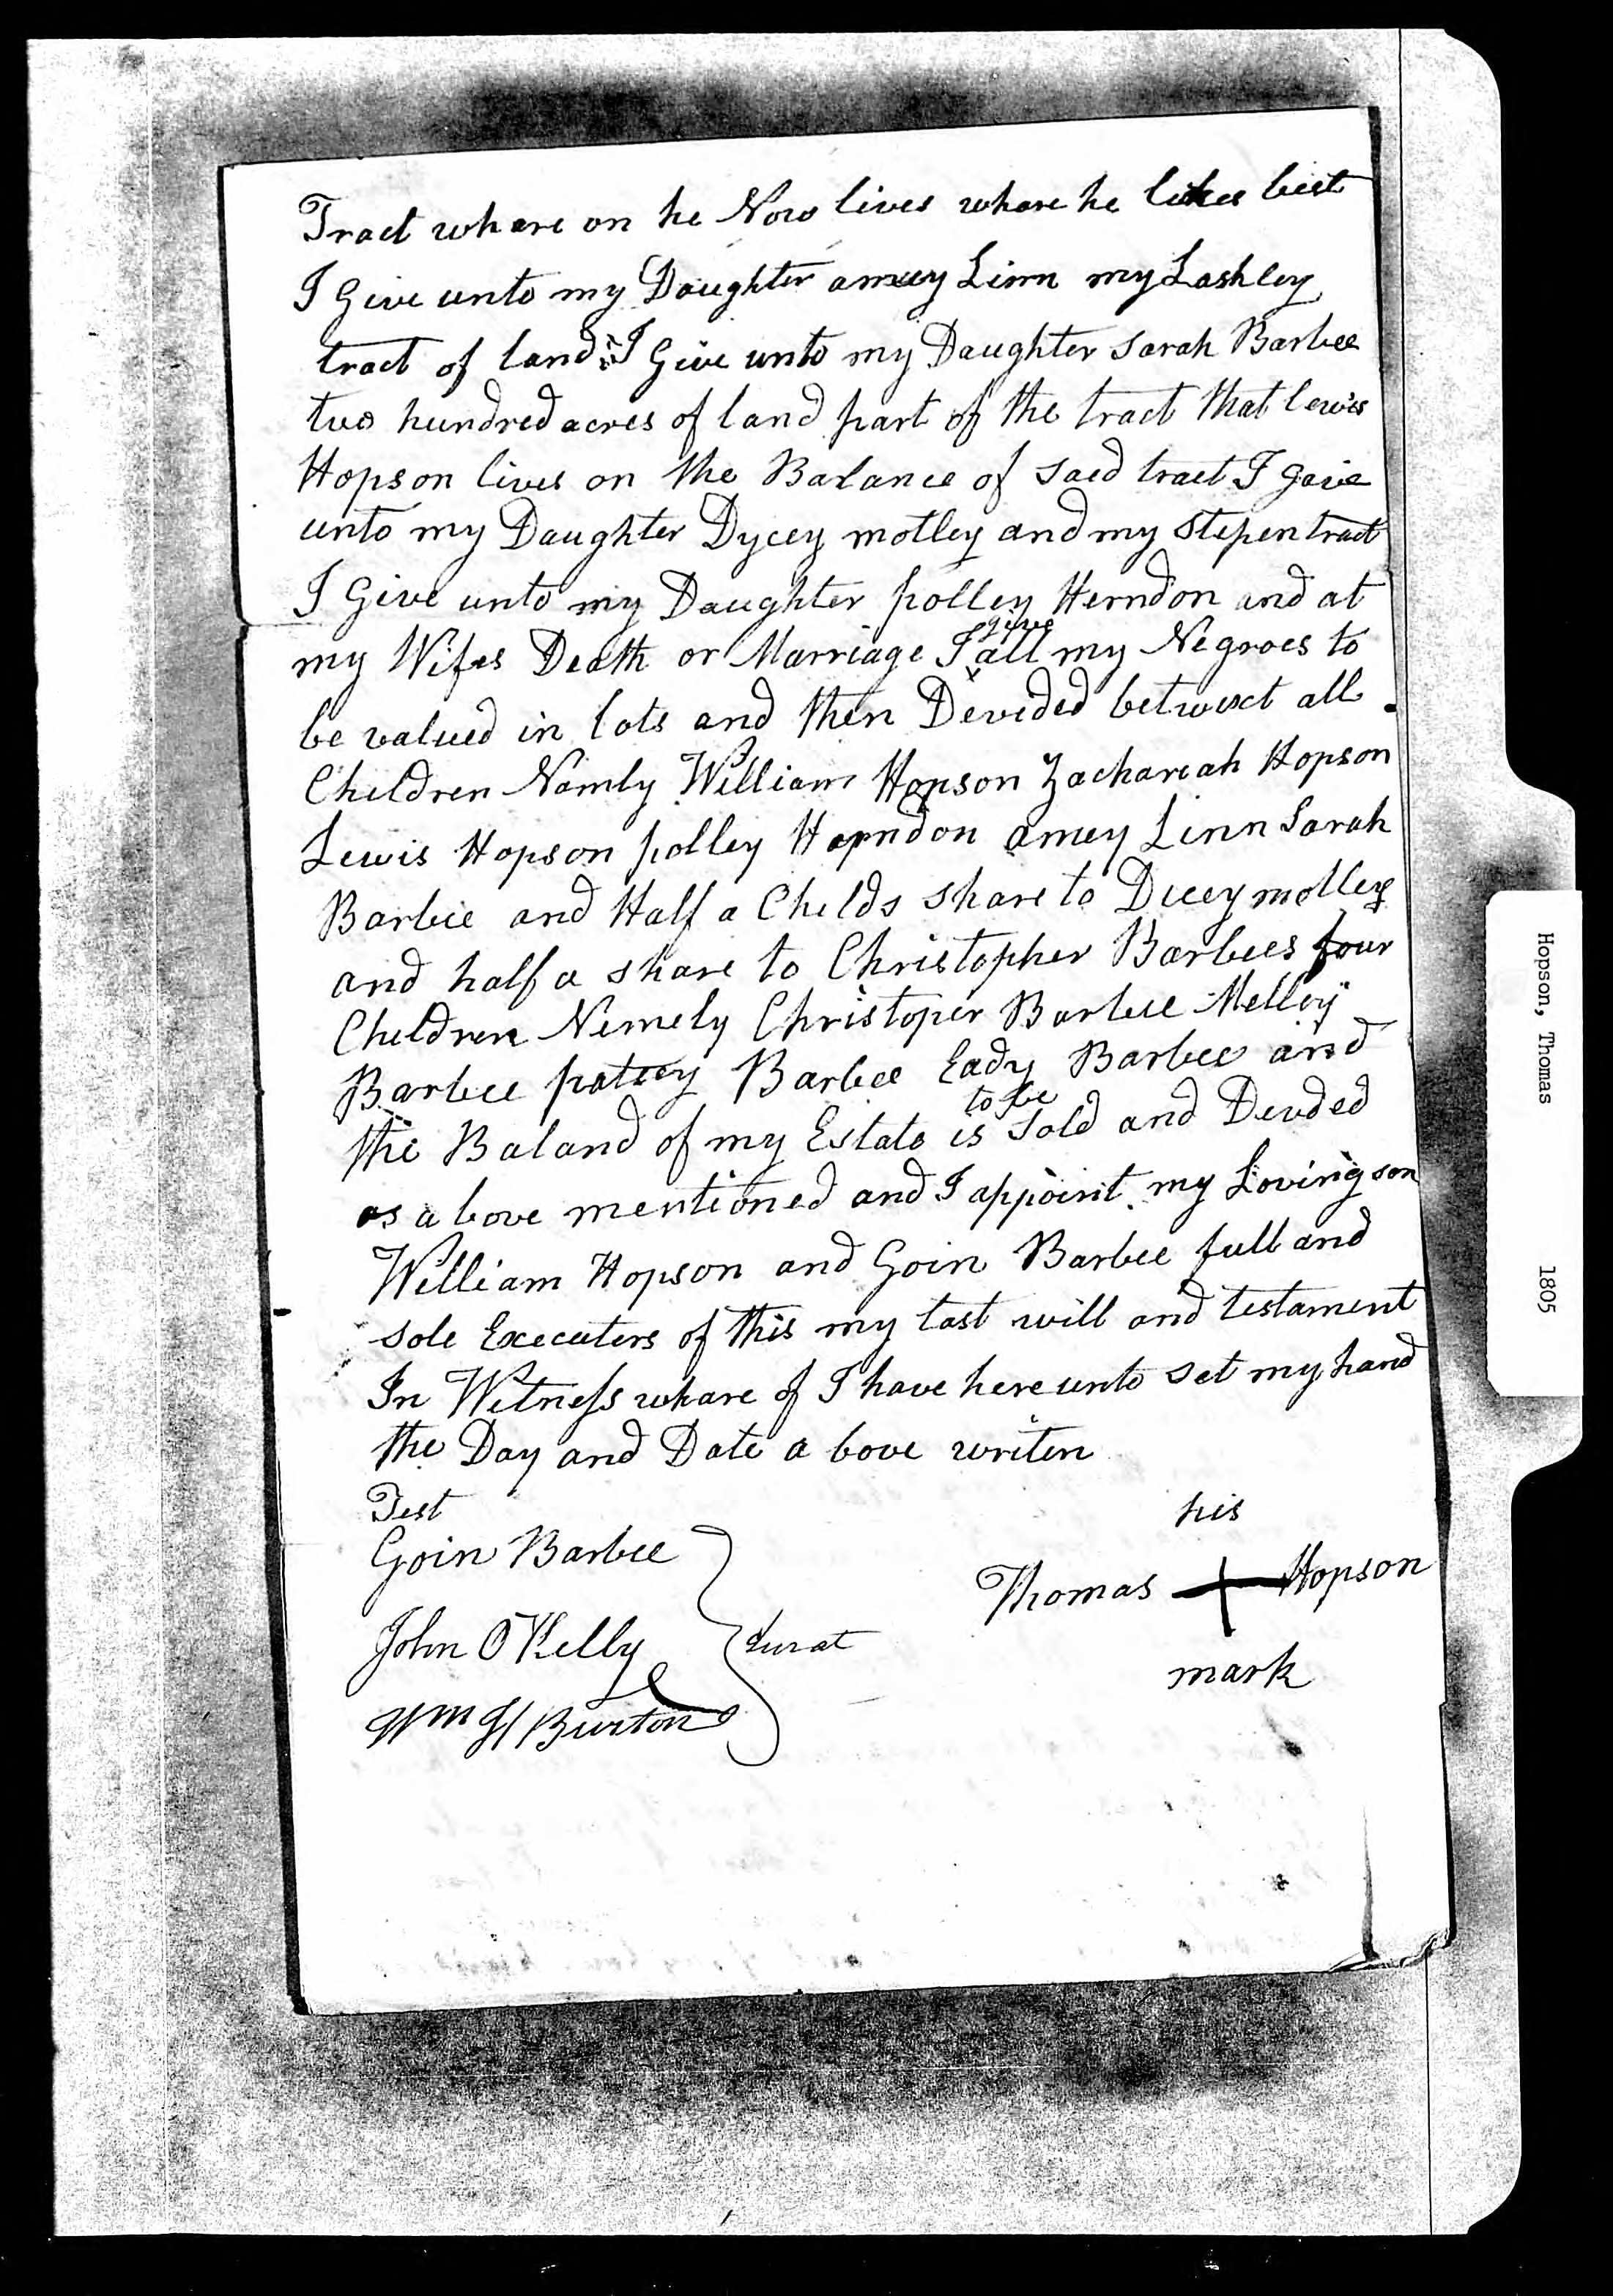 Tract whare on he Now lives whare he likes best
I Give unto my Daughter amey Linn my Lashley
tract of land I Give unto my Daughter Sarah Barbee
two hundred acres of land part of the tract that lewis
Hopson lives on the Balance of saed tract I give
unto my Daughter Dycey motley and my Stepen tract
I Give unto my Daughter polley Herndon and at
give
my Wifes Death or Marriage I all my Negroes to
be valued in lots and then Deveded betwext all
Children Namly William Hopson Zachareah Hopson
Lewis Hopson polley Harndon amey Linn Sarah
Barbee and Half a Childs share to Dicey motley
and half a share to Christopher Barbees four
Children Nemely Christoper Barbee Melley
Barbee patsey Barbee Eady Barbee and
to be
the Baland of my Estate is Sold and Devded
as a bove mentioned and I appoint my Loving son
William Hopson and Goin Barbee full and
sole Executers of this my last will and testament
In Witness whare of I have here unto set my hand
the Day and Date a bove writen
Test
his
Goin Barbee
Thomas + Hopson
John OKelly
Jurat
mark
Wm H Burton
Hopson, Thomas 1805